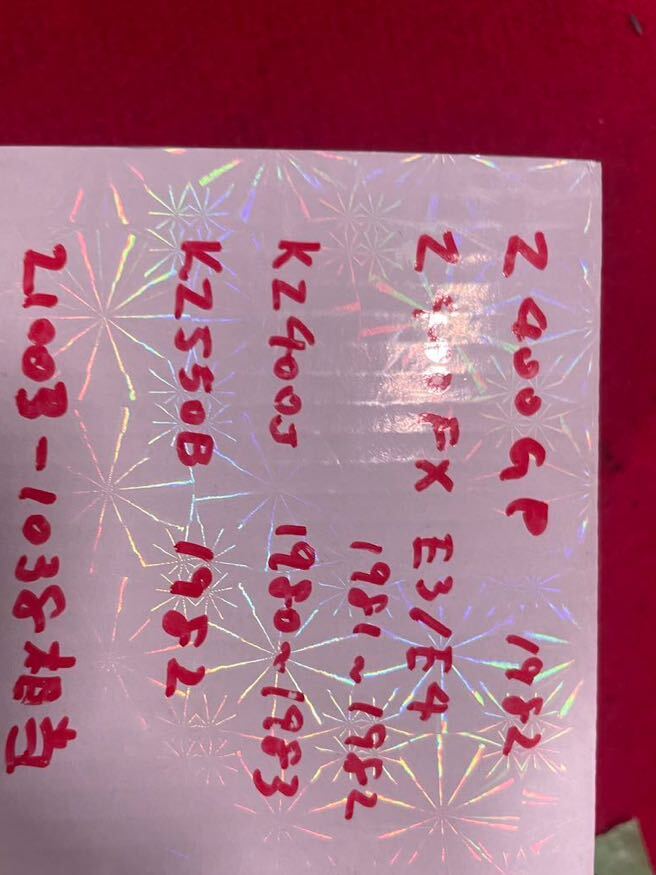 Z400GP 1982
Z400FX E3/E4
1981~1982
KZ400J 1980~1983
KZ550B 1982
21003-1038相当